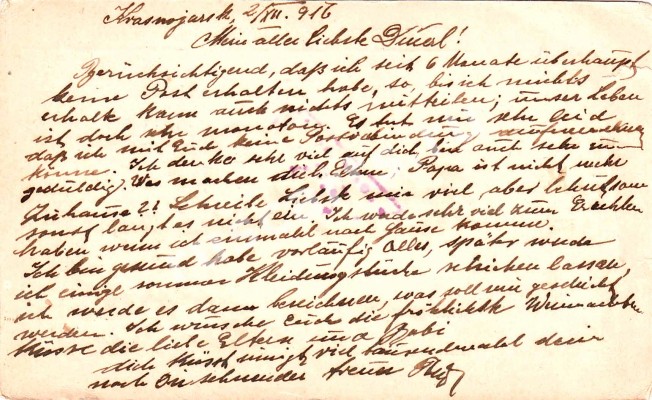 Krasnojarsk, 2/XII. 916
Mein aller liebste
Berücksichtigend, daß ich seit 6 Monate überhaupt
keine Post erhalten habe, so, bis ich nichts
erhalte kann auch nichts mitteilen; unser Leben
ist doch sehr monoton. Es tut mir sehr leid
daß ich mit Euch keine
könne. Ich denke sehr viel auf dich, bin auch sehr un-
geduldig. Was machen die Papa ist nicht mehr
Zuhause?! Schreibe Liebste mir viel aber behutsam
sonst langt es nicht ein. Ich werde sehr viel zum Erzählen
haben wenn ich einmahl nach Hause komme.
Ich bin gesund habe vorläufig Alles, später werde
ich einige sommer Kleidungstücke schicken lassen,
ich werde es dann bezeichnen, was soll mir geschickt
werden. Ich wünsche Euch die fröhlichste Weihnachten
Küsse die liebe Eltern und Babi
dich küsst innigst viel tausendmahl dein
nach dir treuer